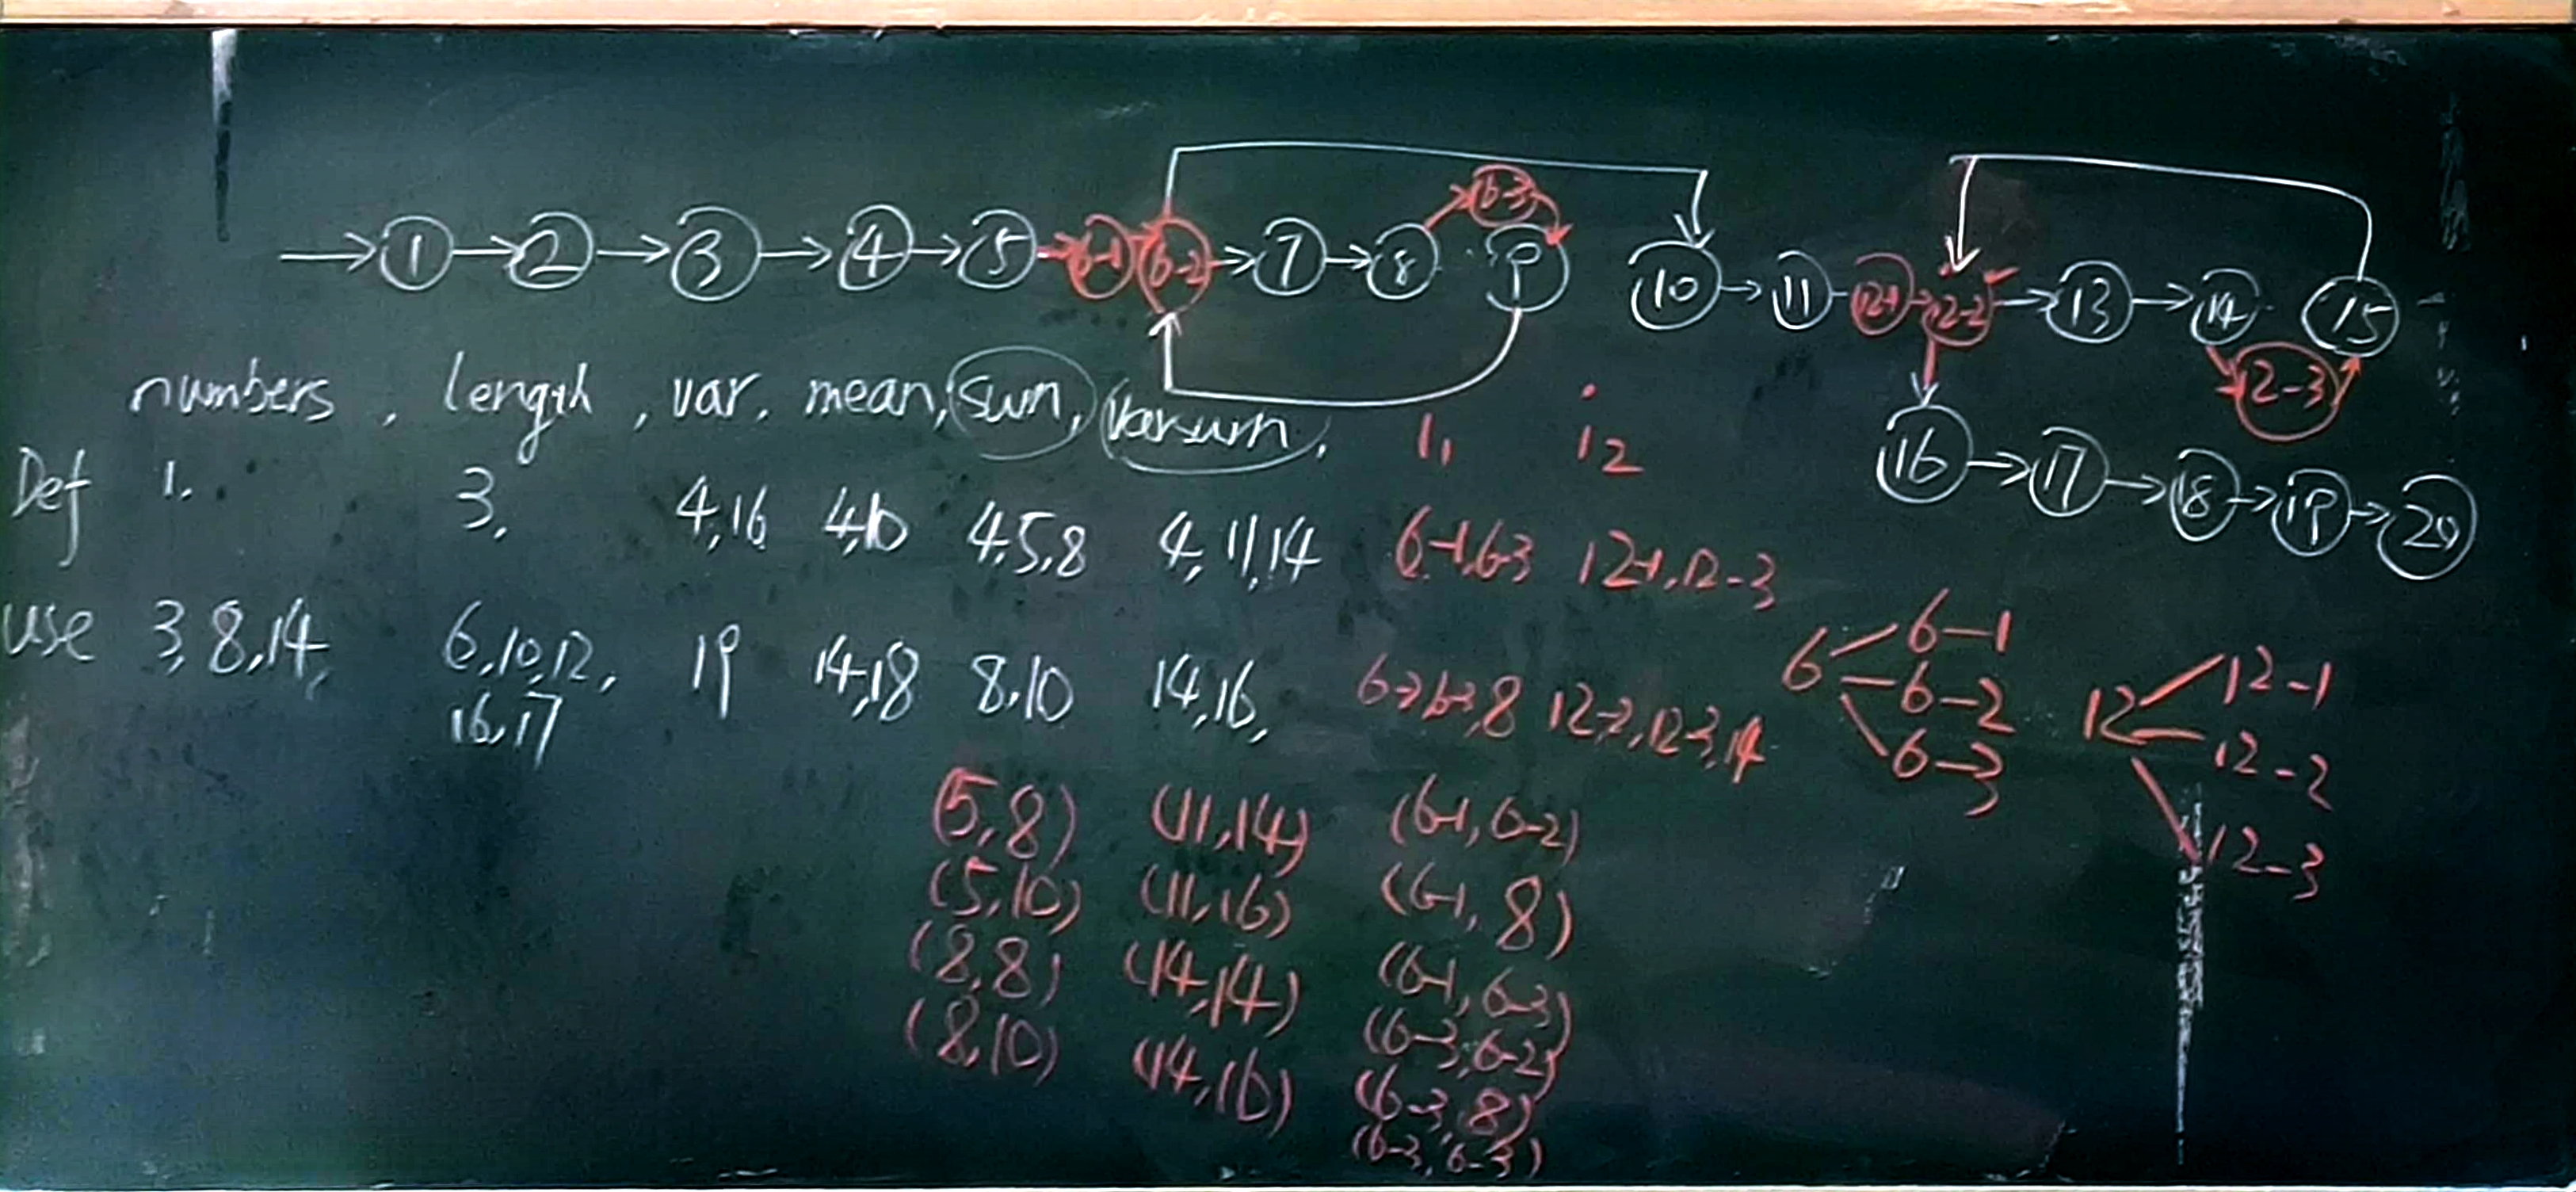 1 2 3 4 5 6-1 6-2 7 8 6-3 9 10 11 12-1 12-2 13 14 12-3 15
16 17 18 19 20
numbers, length, var, mean, sum, varsum, i1 i2
Def 1. 3, 4,16 4,10 4,5,8 4,11,14 6-1,6-3 12-1,12-3
use 3,8,14, 6,10,12, 19 14,18 8,10 14,16, 6-2,6-3,8 12-2,12-3,14
16,17
6 6-1
6-2
6-3
12 12-1
12-2
12-3
(5,8) (11,14) (6-1,6-2)
(5,10) (11,16) (6-1,8)
(8,8) (14,14) (6-1,6-3)
(8,10) (14,16) (6-3,6-2)
(6-3,8)
(6-3,6-3)